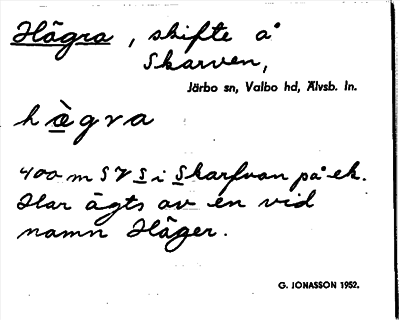 Hägra, skifte å
Skarven,
Järbo sn, Valbo hd, Älvsb. ln.
hä̀gra
400 m SV S i Skarfvan på ek.
Har ägts av en vid
namn Häger.
G. JONASSON 1952.